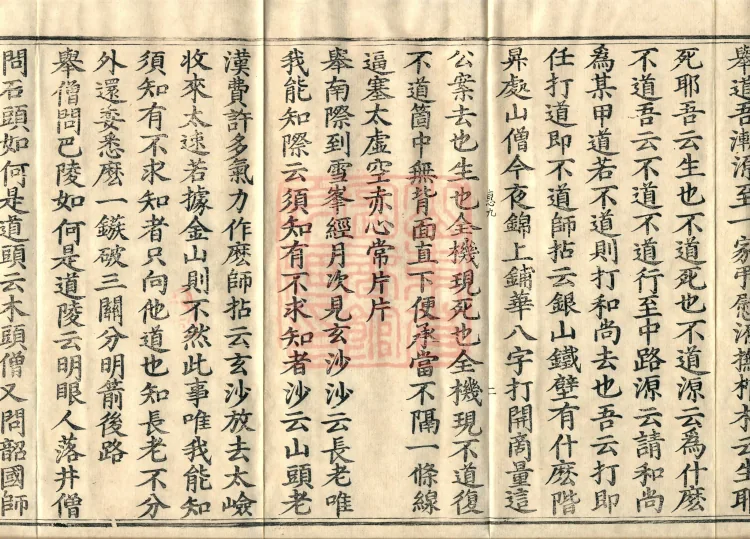 舉道吾漸源至一家弔慰源撫棺木云生耶
死耶吾云生也不道死也不道源云爲什麽
不道吾云不道不道行至中路源云請和尚
爲某甲道若不道則打和尚去也吾云打即
任打道即不道師拈云銀山鐵壁有什麽階
昇處山僧今夜錦上鋪華八字打開商量這
公案去也生也全機現死也全機現不道復
不道箇中無背面直下便承當不隔一條線
逼塞太虛空赤心常片片
舉南際到雪峯經月次見玄沙沙云長老唯
我能知際云須知有不求知者沙云山頭老
漢費許多氣力作麽師拈云玄沙放去太嶮
收來太速若據金山則不然此事唯我能知
須知有不求知者只向他道也知長老不分
外還委悉麽一鏃破三關分明箭後路
舉僧問巴陵如何是道陵云明眼人落井僧
問石頭如何是道頭云木頭僧又問韶國師